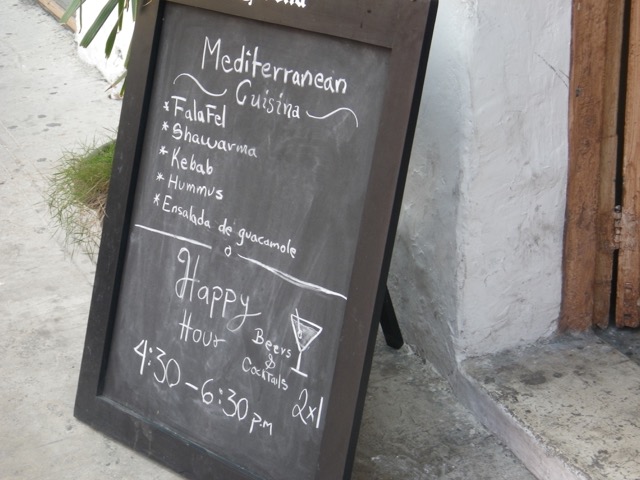 Mediterranean
Cuisina
*Falafel
*Shawarma
*Kebab
*Hummus
*Ensalada de guacamole
Happy
Hour
Beers
&
Cocktails
4:30-6:30 p.m
2x1